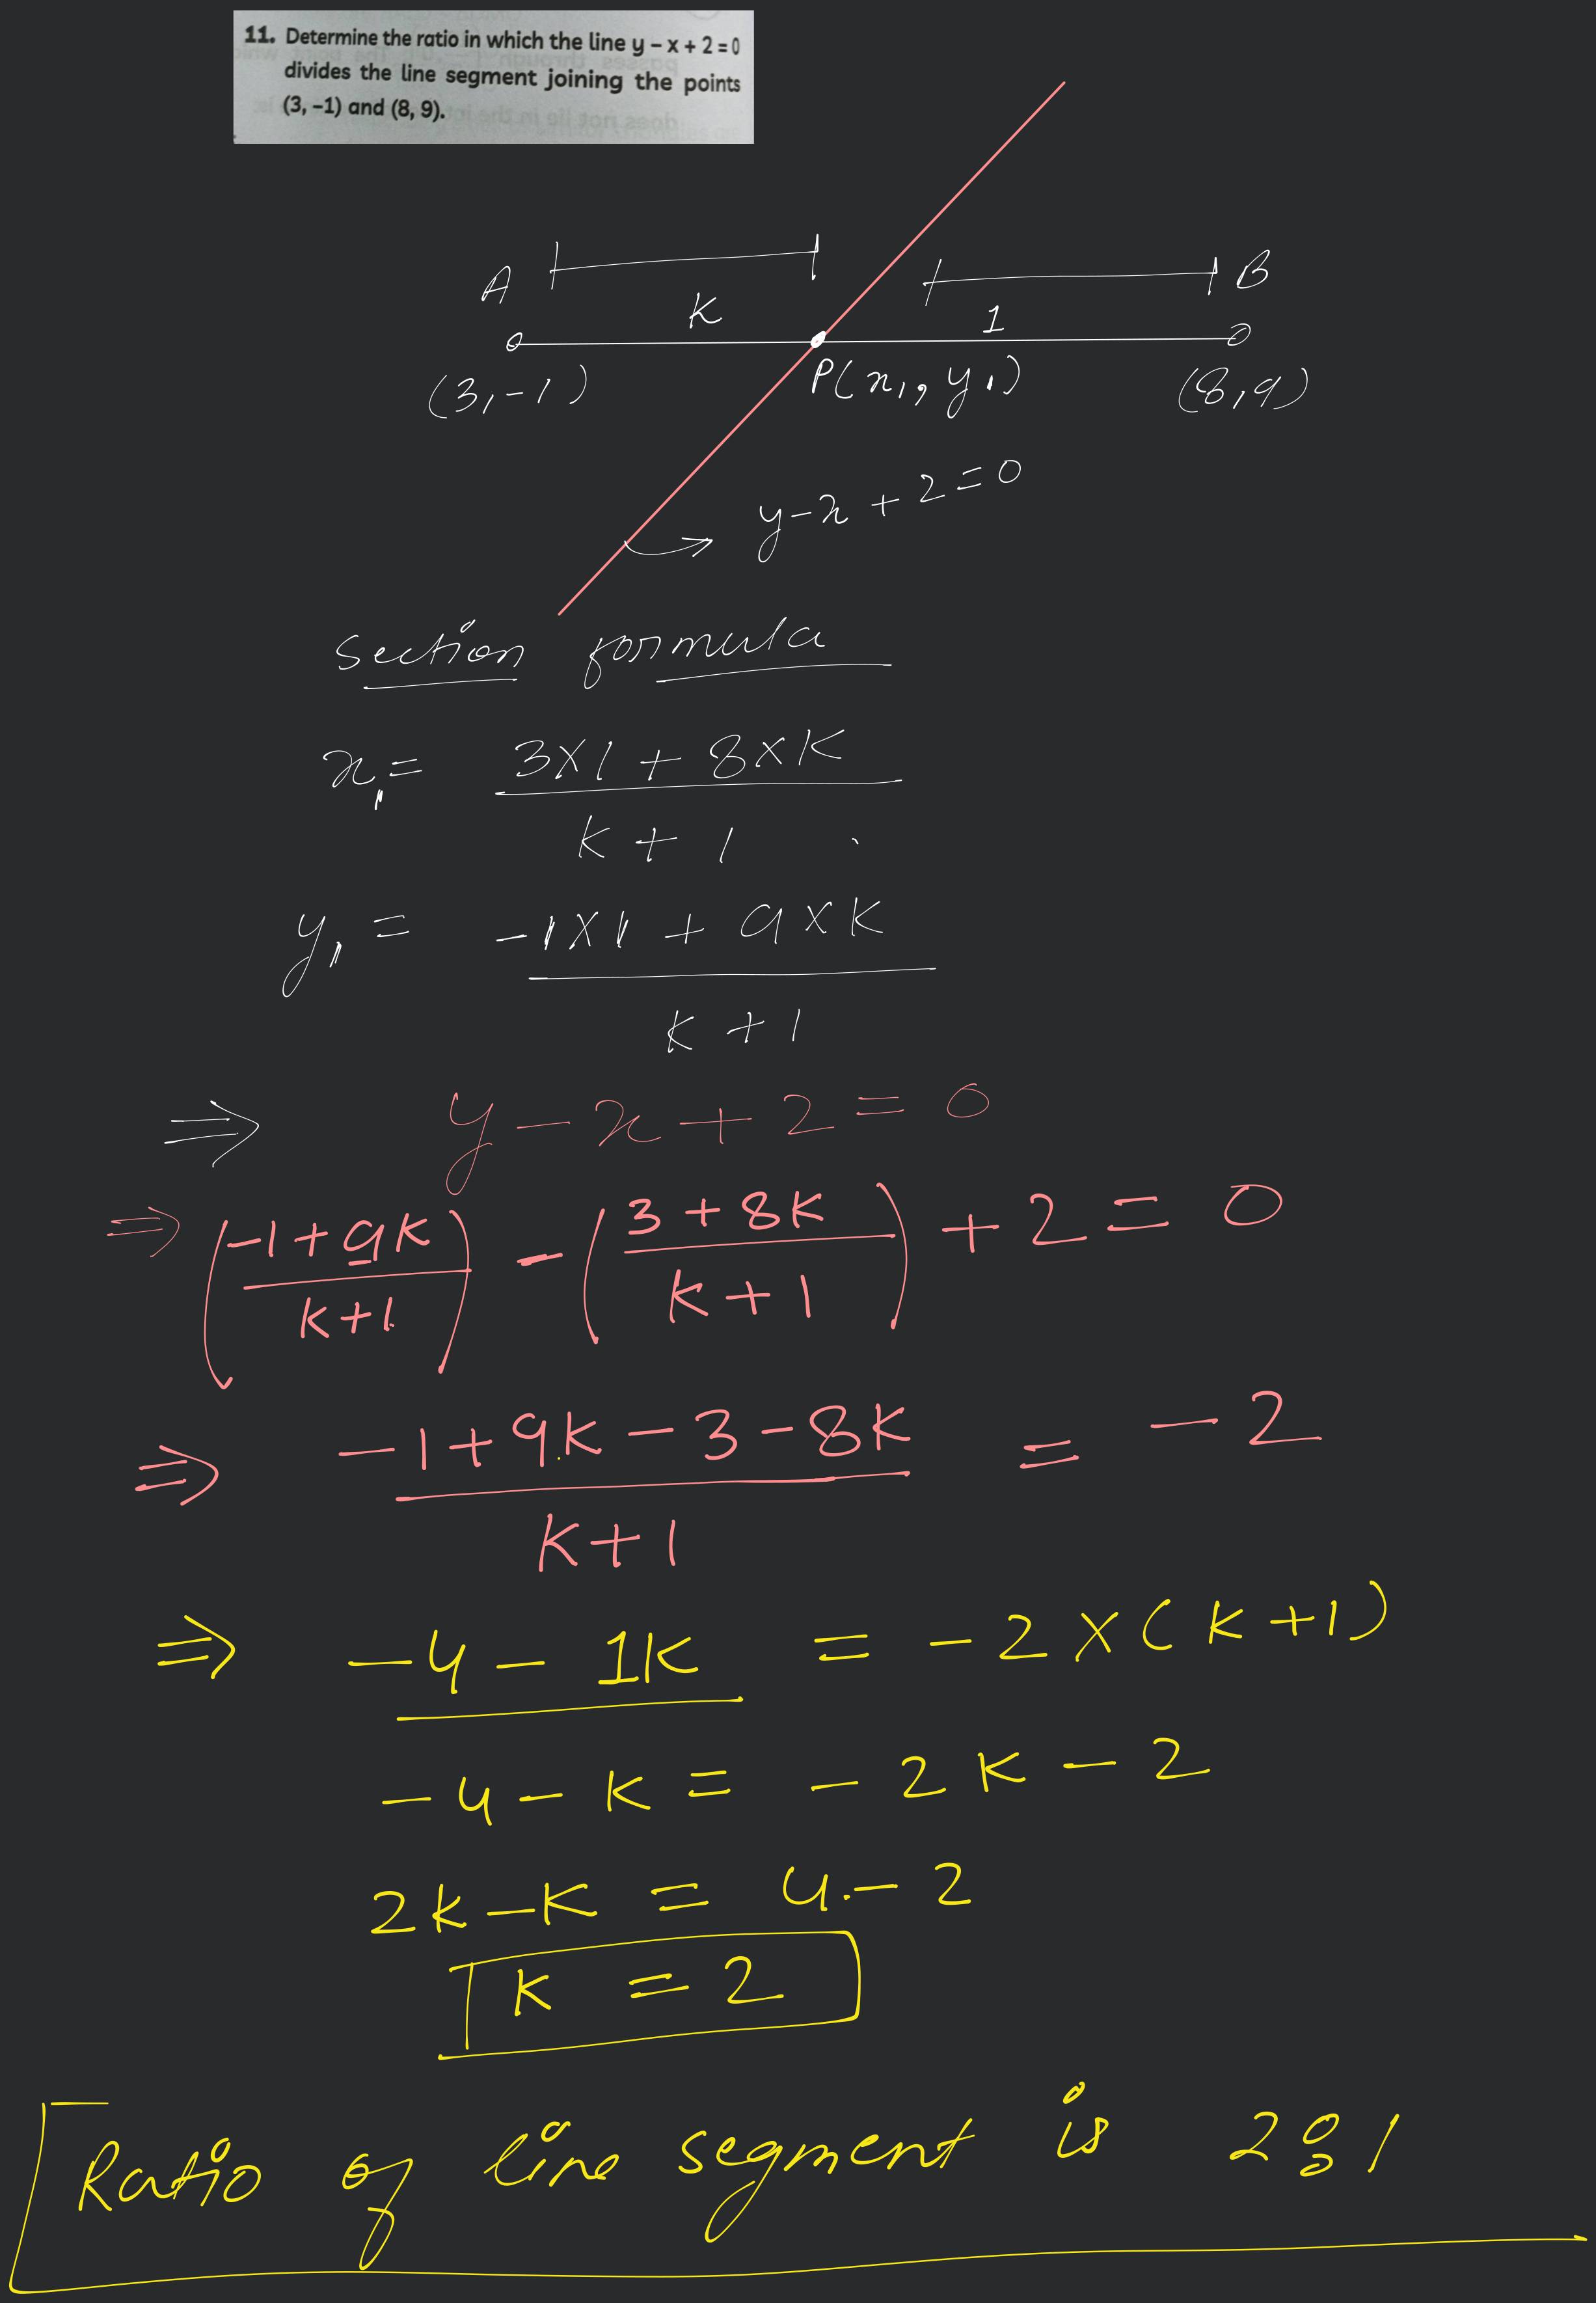 11. Determine the ratio in which the line y – x + 2 = 0
divides the line segment joining the points
(3, –1) and (8, 9).
A B
K 1
(3,-1) P(x₁, y₁) (8,9)
y-x+2=0
section formula
x₁ = 3×1 + 8×K
K + 1
y₁ = -1×1 + 9×K
K + 1
⇒ y - x + 2 = 0
⇒ (-1+9K / K+1) - (3+8K / K+1) + 2 = 0
⇒ -1+9K-3-8K = -2
K+1
⇒ -4 - 1K = -2×(K+1)
-4-K = -2K-2
2K-K = 4-2
K = 2
Ratio of line segment is 2:1